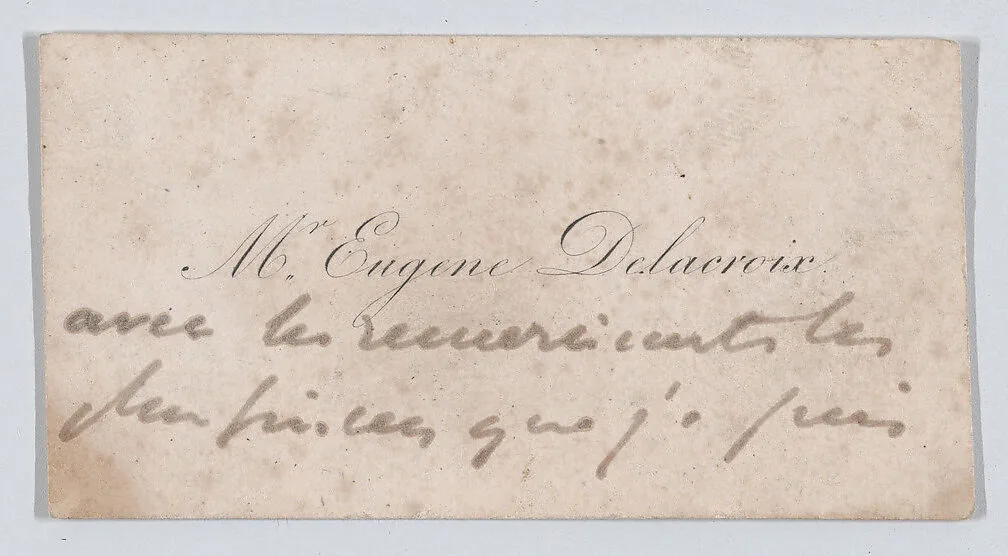 Mr. Eugène Delacroix
avec les remerciments les
plus sincères que je puis